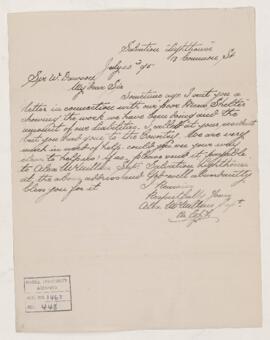 Salvation "Lighthouse"
Commune St
July 20th 95
Sir W. Dawson
My Dear Sir
Sometime ago I sent you a
letter in connection with our Poor Mens Shelter
showing the work we have been doing and the
amount of our liabilities. I called at your residence
but you had gone to the Country. We are very
much in need of help. could you see your way
clear to help us? if so, please send it payable
to Alex McMillan Supt. Salvation Lighthouse
at the above address and God will abundantly
bless you for it.
I Remain
Respectfully Yours
Alex McMillan Supt.
McGILL UNIVERSITY
ARCHIVES
ACC. NO. 1463
REF.